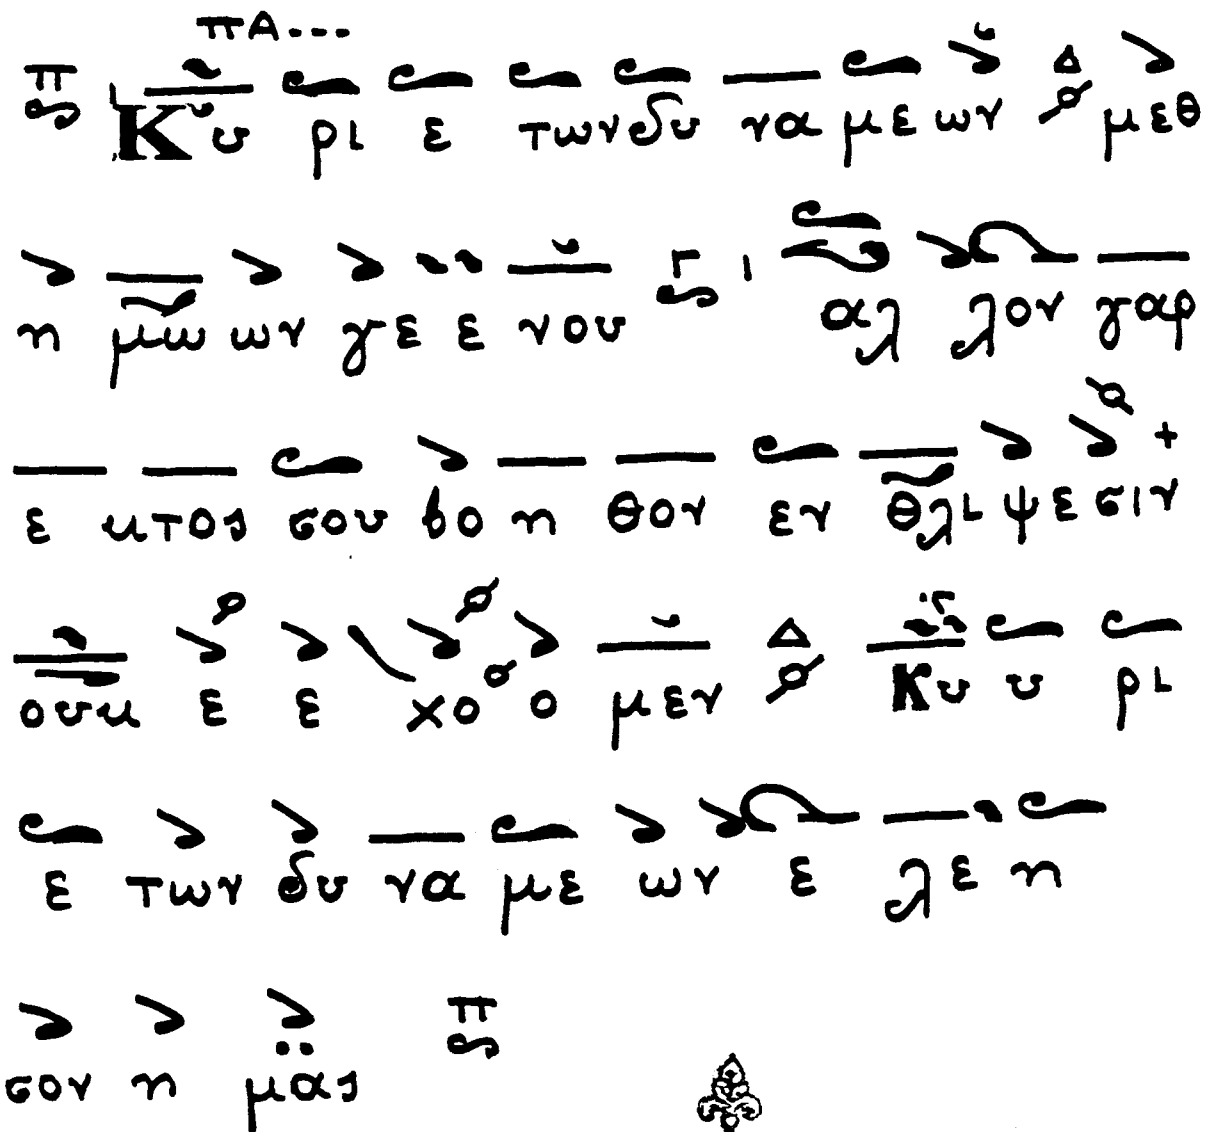 πΑ...
π Κυ ρι ε των δυ να με ων Δ μεθ
η μω ων γε ε νου Γ αλ λον γαρ
ε κτος σου βο η θον εν θλι ψε σιν
ουκ ε ε χο ο μεν Δ Κυ υ ρι
ε των δυ να με ων ε λε η
σον η μας π